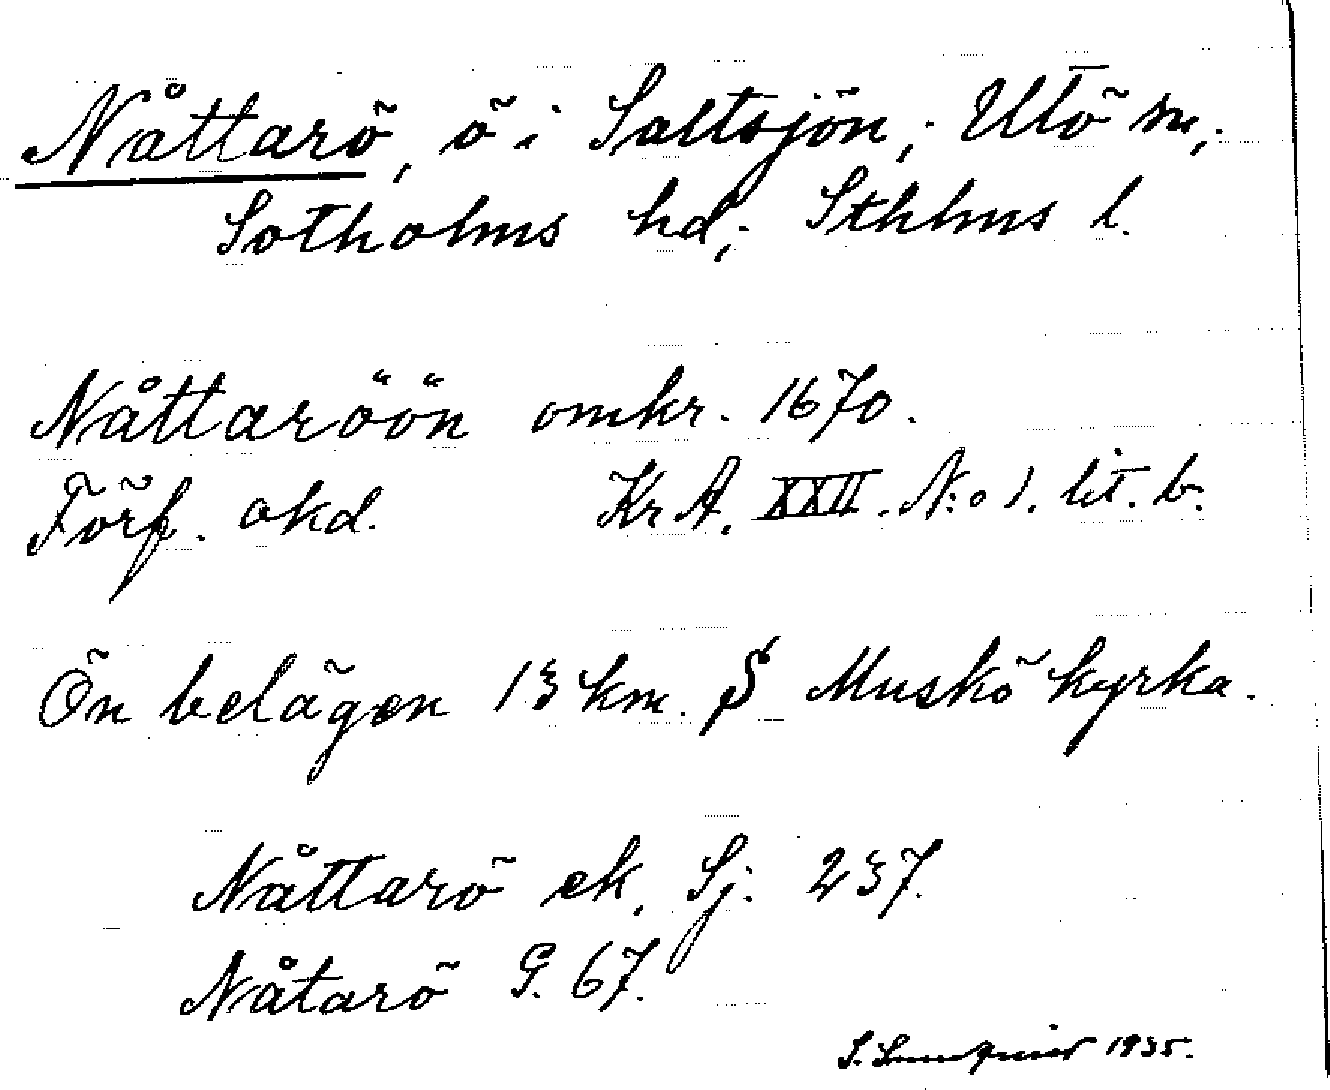 Nåttarö, ö i Saltsjön; Utö sn;
Sotholms hd; Sthlms l.
Nåttaröön omkr. 1670.
Förf. okd. Kr A. XXII. N:o 1. lit. b.
Ön belägen 13 km. S Muskö kyrka.
Nåttarö ek. Sj. 237.
Nåtarö G. 67.
S. 1935.